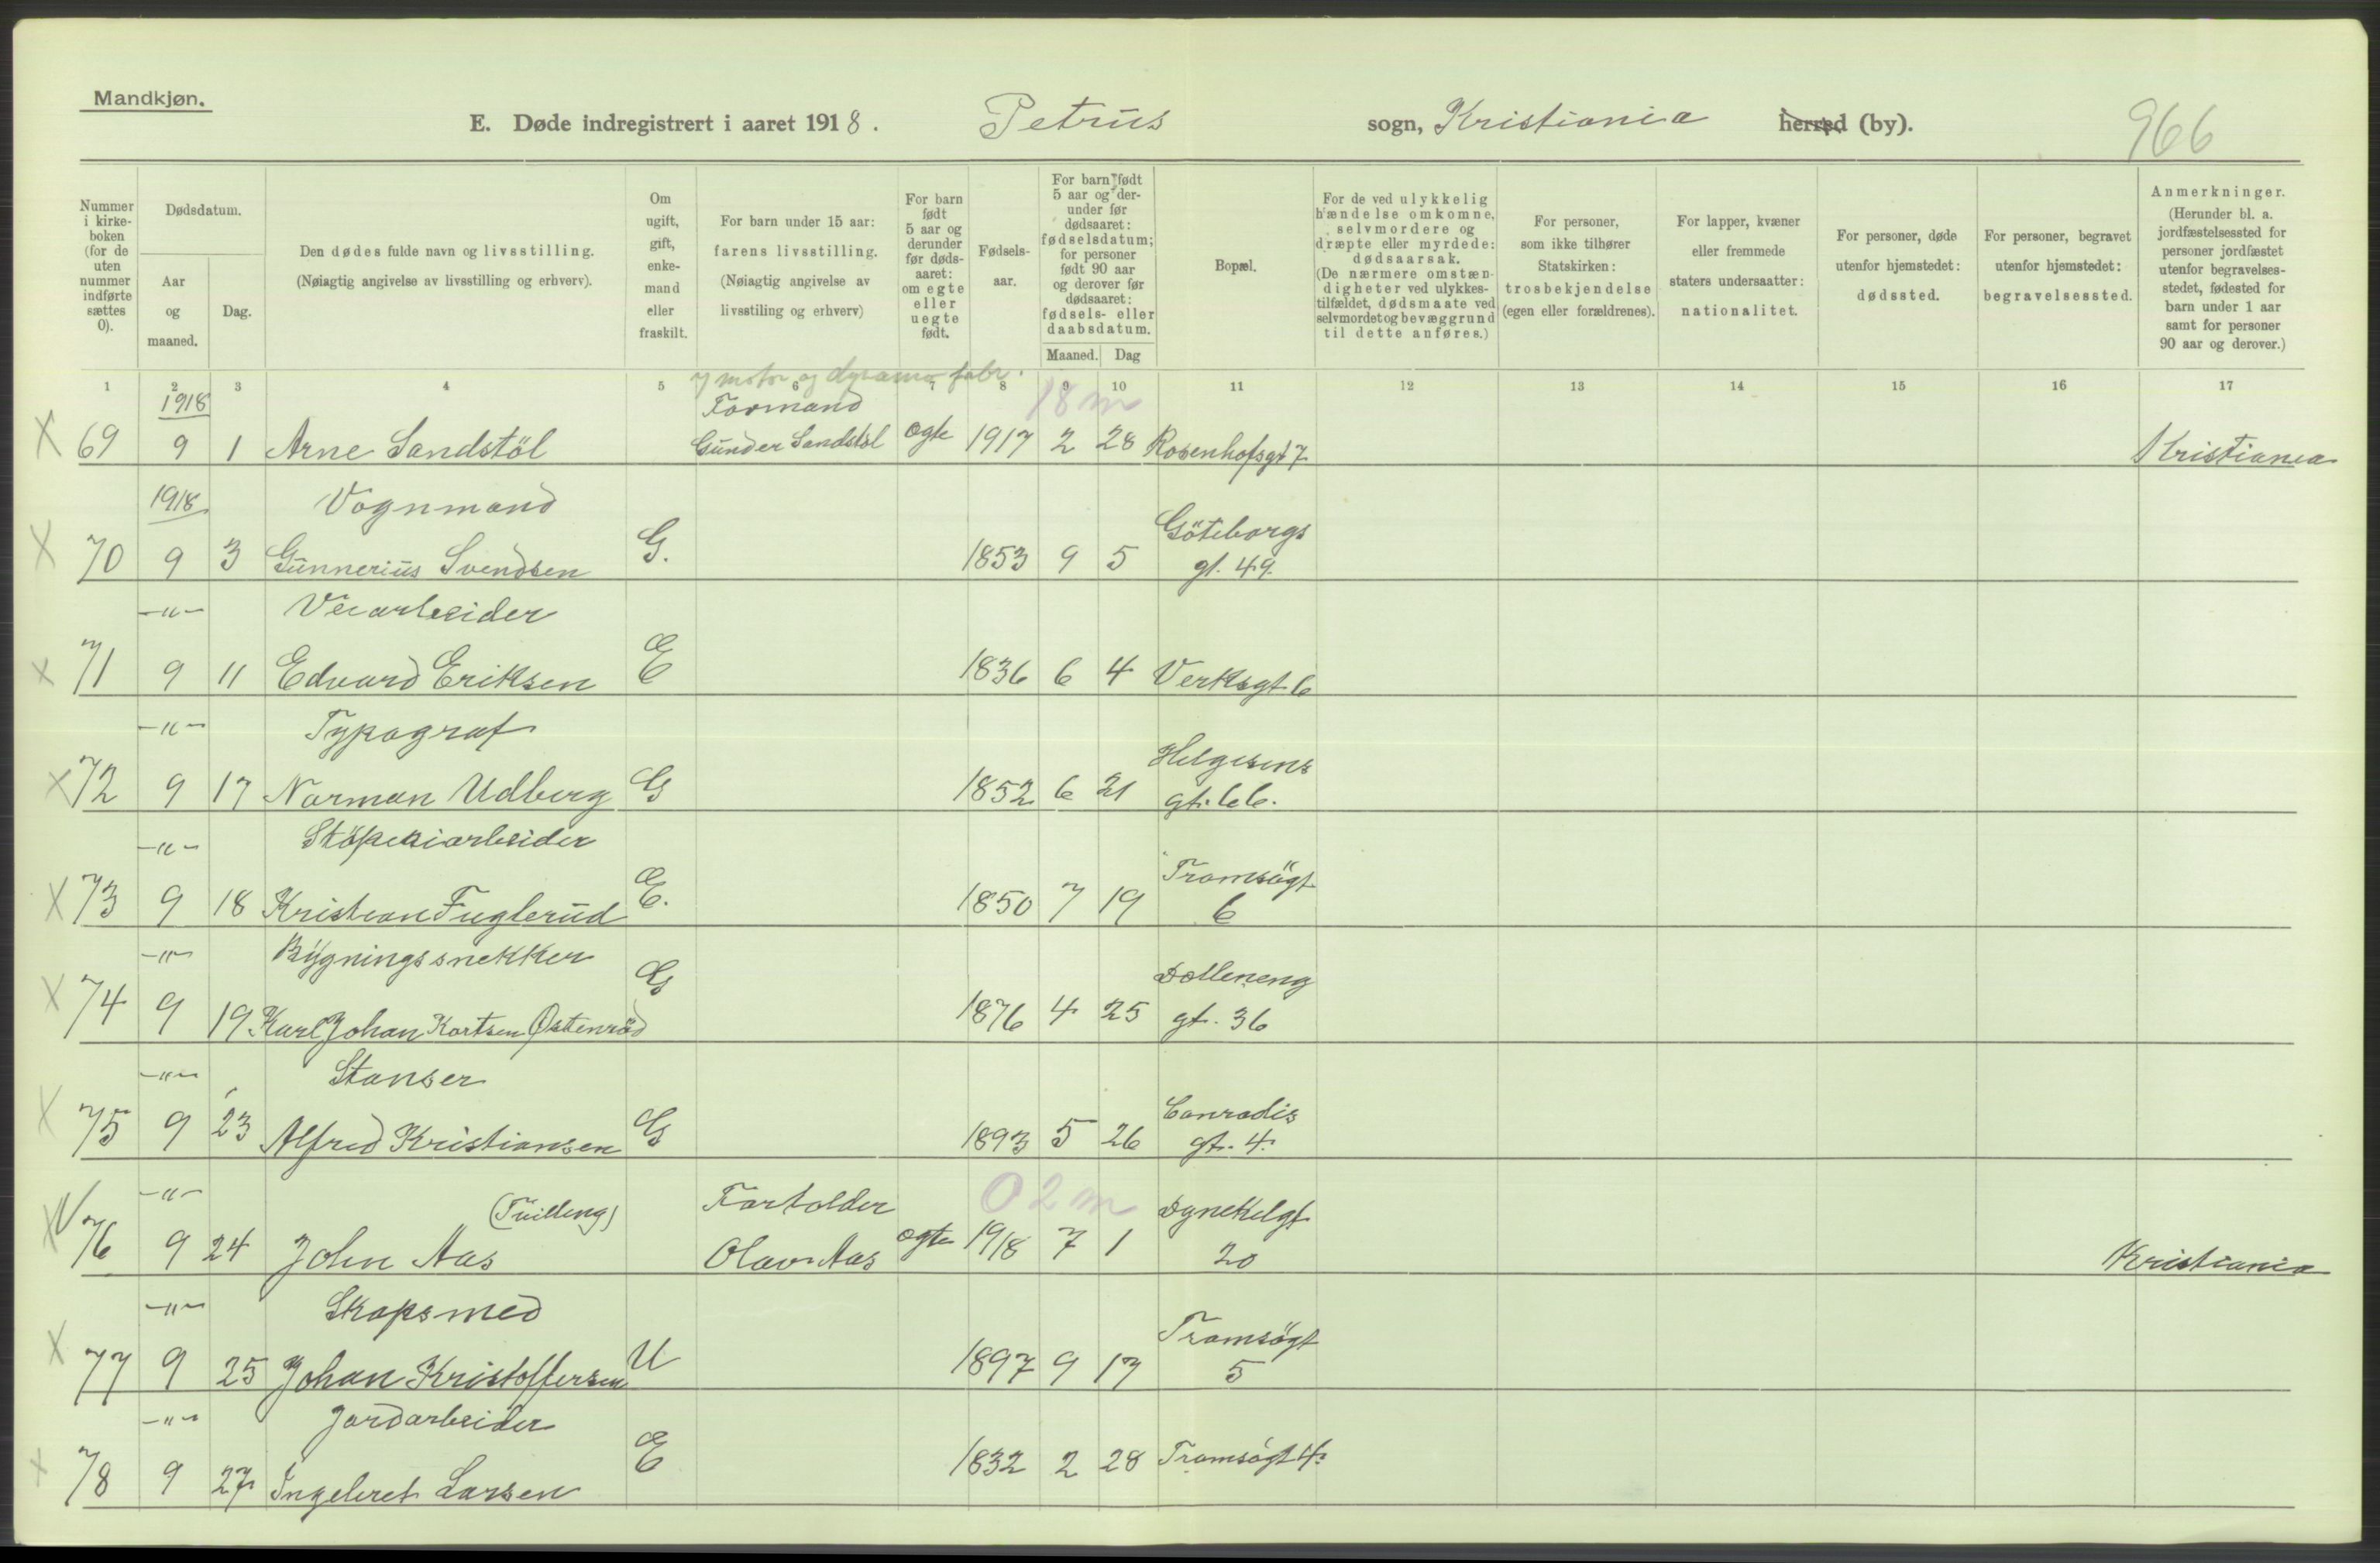 Mandkjøn.
E. Døde indregistrert i aaret 1918. Petrus sogn, Kristiania herred (by). 966
Nummer i kirkeboken (for de uten nummer indførte sættes 0).
Dødsdatum.
Aar og maaned.
Dag.
Den dødes fulde navn og livsstilling.
(Nøiagtig angivelse av livsstilling og erhverv).
Om ugift, gift, enkemand eller fraskilt.
For barn under 15 aar: farens livsstilling.
(Nøiagtig angivelse av livsstiling og erhverv)
For barn født 5 aar og derunder før dødsaaret: om egte eller uegte født.
Fødselsaar.
For barn født 5 aar og derunder før dødsaaret: fødselsdatum; for personer født 90 aar og derover før dødsaaret: fødsels- eller daabsdatum.
Maaned. Dag
Bopæl.
For de ved ulykkelig hændelse omkomne, selvmordere og dræpte eller myrdede: dødsaarsak.
(De nærmere omstændigheter ved ulykkestilfældet, dødsmaate ved selvmordet og bevæggrund til dette anføres.)
For personer, som ikke tilhører Statskirken: trosbekjendelse (egen eller forældrenes).
For lapper, kvæner eller fremmede staters undersaatter: nationalitet.
For personer, døde utenfor hjemstedet: dødssted.
For personer, begravet utenfor hjemstedet: begravelsessted.
Anmerkninger.
(Herunder bl. a. jordfæstelsessted for personer jordfæstet utenfor begravelsesstedet, fødested for barn under 1 aar samt for personer 90 aar og derover.)
1 2 3 4 5 6 7 8 9 10 11 12 13 14 15 16 17
motor og dynamo fabr.
1918 Formand 18 m
X 69 9 1 Arne Sandstöl Gunder Sandstöl ogte 1917 2 28 Rosenhofsgt 7 Kristiania
1918 Vognmand Göteborgs
X 70 9 3 Gunnerius Svendsen G. 1853 9 5 gt. 49.
-"- Veiarbeider
X 71 9 11 Edvard Eriksen E 1836 6 4 Verksgt 6
-"- Typograf Helgesens
X 72 9 17 Norman Udberg G 1852 6 21 gt. 66.
-"- Støperiarbeider Tromsögt
X 73 9 18 Kristian Fuglerud E. 1850 7 19 6
-"- Bygningssnekker Dælleneng
X 74 9 19 Karl Johan Kortsen Østenröd G 1876 4 25 gt. 36
-"- Stanser Conradis
X 75 9 23 Alfred Kristiansen G 1893 5 26 gt. 4.
-"- (Tvilling) Fortolder 0 2 m Dynekilgt
X 76 9 24 John Aas Olav Aas ogte 1918 7 1 20 Kristiania
-"- Skapsmed Tromsögt
X 77 9 25 Johan Kristoffersen U 1897 9 17 5
-"- Jordarbeider
X 78 9 27 Ingebret Larsen E 1832 2 28 Tromsögt 4.